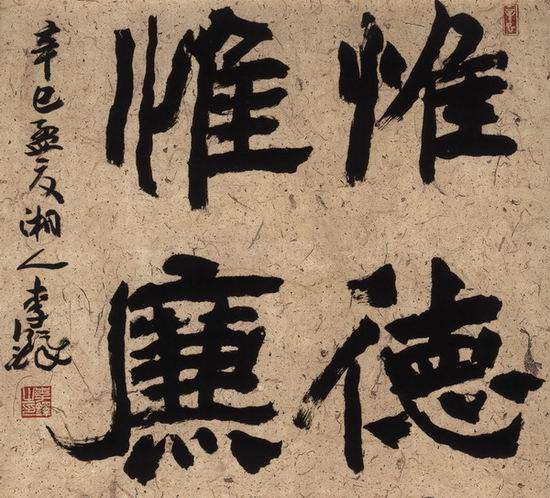 惟德
惟廉
辛巳孟夏湘人李鐸